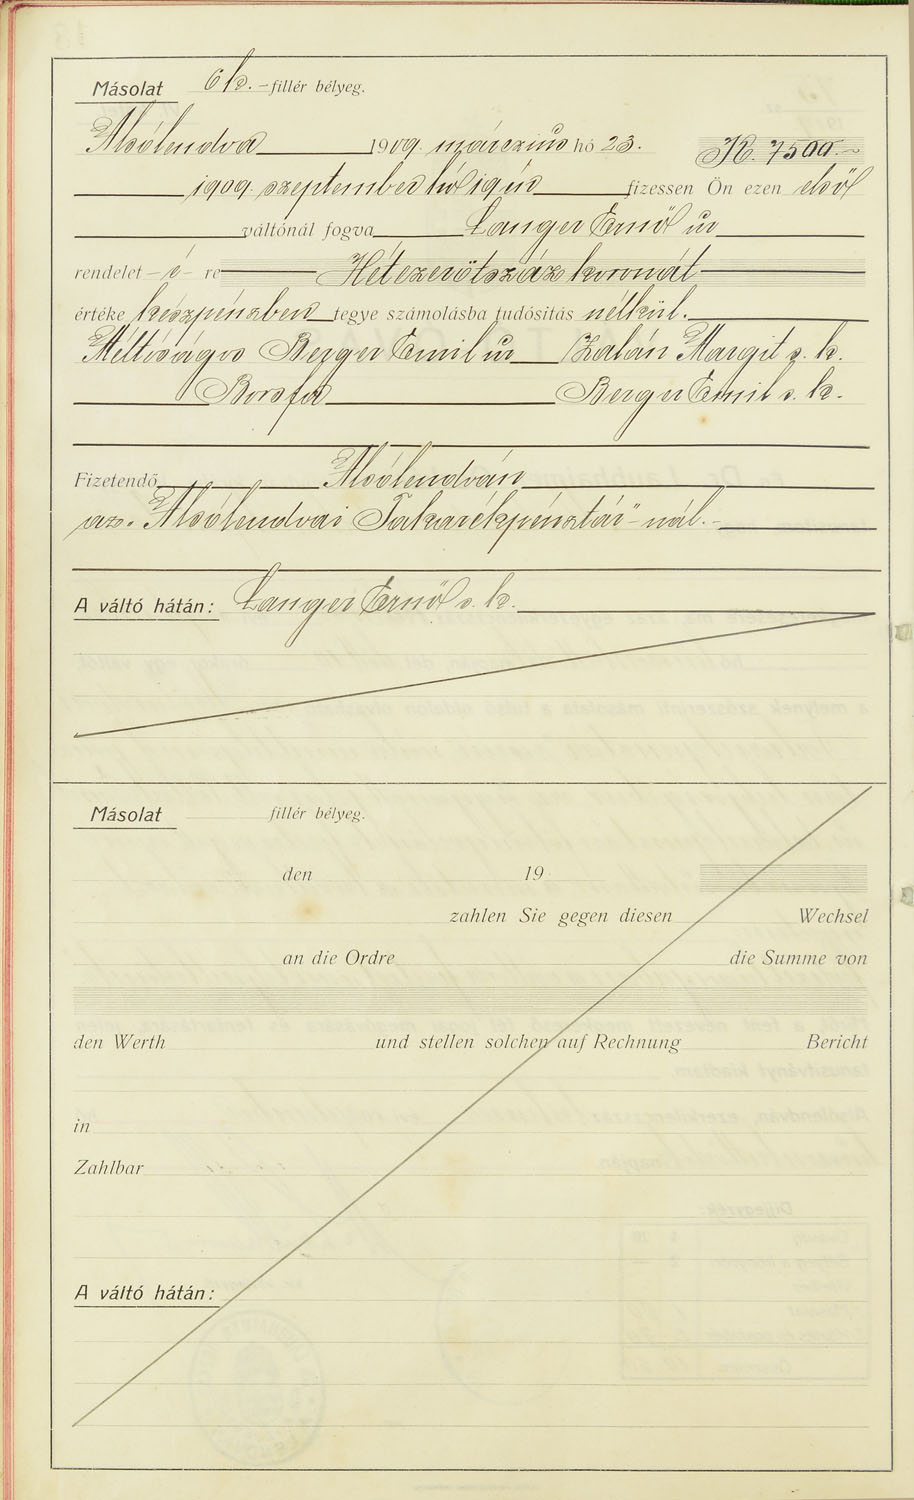 Másolat 6 k. – fillér bélyeg.
Alsólendva 1909. márczius hó 23. K. 7500.–
1909. szeptember hó 19én fizessen Ön ezen első
váltónál fogva Langer Ernő úr
rendelet – é – re Hétezerötszáz koronát
értéke készpénzben tegye számolásba tudósitás nélkül.
Méltóságos Berger Emil úr Zalán Margit s. k.
Borsfa Berger Emil s. k.
Fizetendő Alsólendván
az „Alsólendvai Takarékpénztár"-nál.–
A váltó hátán: Langer Ernő s. k.
Másolat fillér bélyeg.
den 19
zahlen Sie gegen diesen Wechsel
an die Ordre die Summe von
den Werth und stellen solchen auf Rechnung Bericht
in
Zahlbar
A váltó hátán: